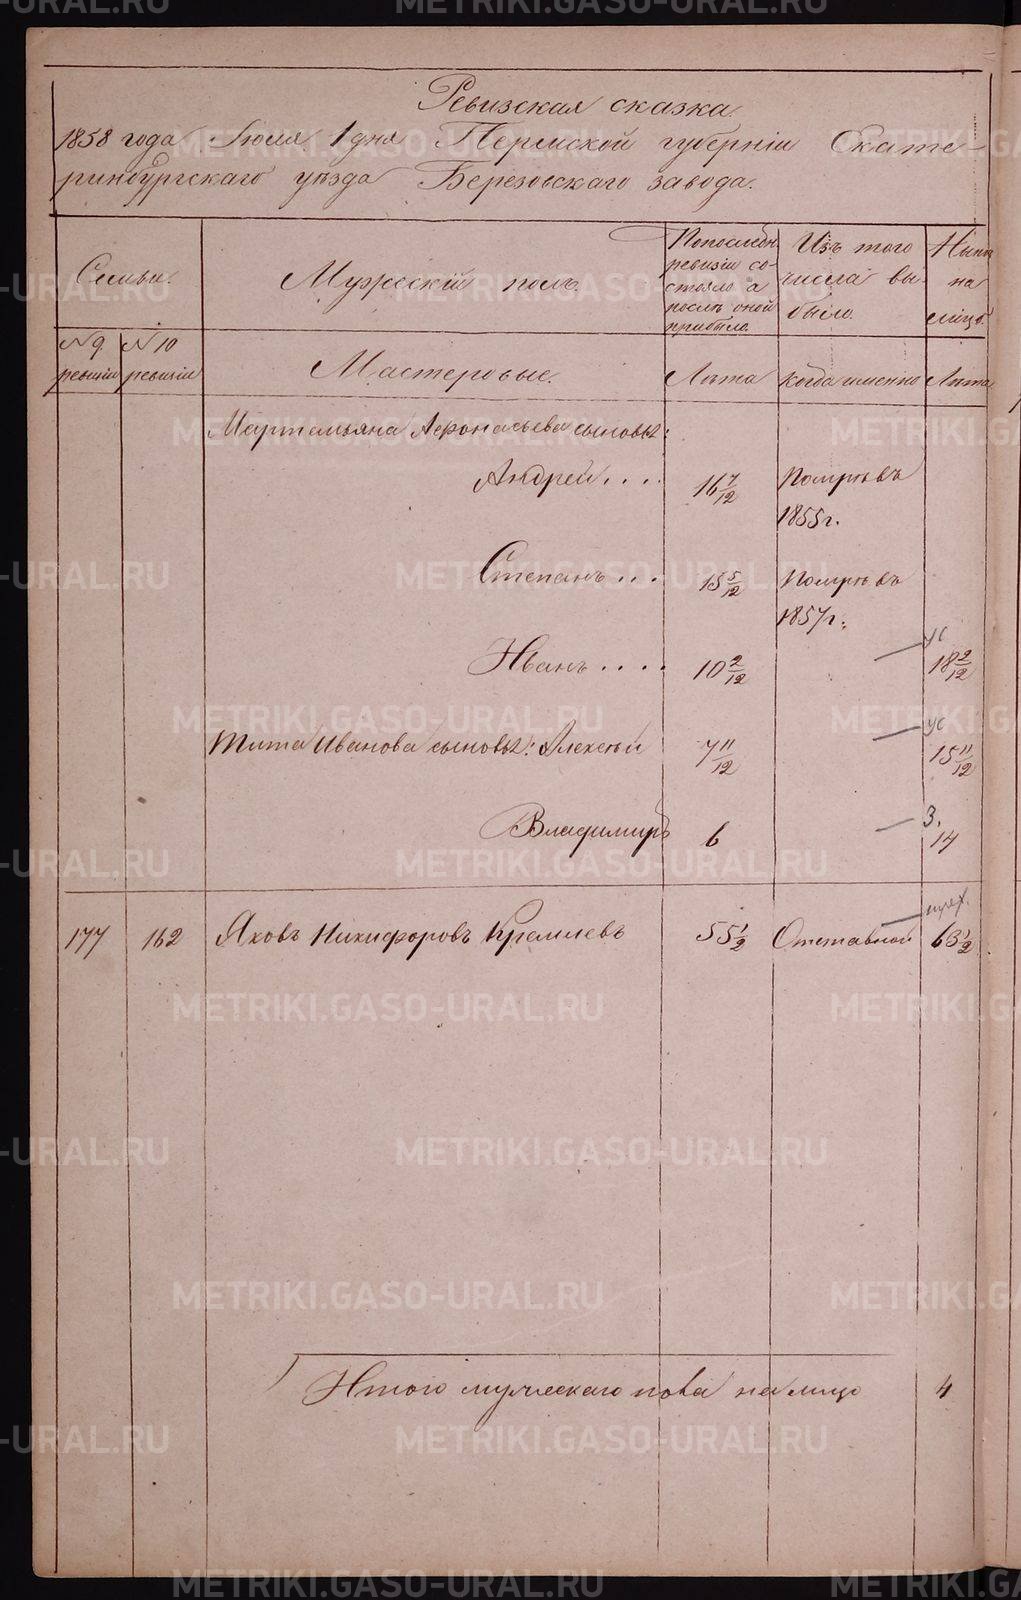 Ревизская сказка
1858 года Іюля 1 дня Пермской губерніи Екате-
ринбургскаго уѣзда Березовскаго завода.
Семьи.
Мужескій полъ.
По послѣдн.
ревизіи со-
стояло а
послѣ оной
прибыло.
Изъ того
числа вы-
было.
Нынѣ
на
лицо.
№ 9
ревизіи
№ 10
ревизіи
Мастеровые.
Лѣта
когда именно
Лѣта
Мартемьяна Афонасьева сыновья:
Андрей....
16 7/12
Помръ въ
1855 г.
Степанъ...
15 5/12
Помръ въ
1857 г.
Иванъ....
10 2/12
ус
18 2/12
Тита Иванова сыновья: Алексѣй
7 11/12
ус
15 11/12
Владимиръ
6
З.
14
177
162
Яковъ Никифоровъ Кремлевъ
55 1/2
Отставной
63 1/2
Итого мужескаго пола на лицо
4
METRIKI.GASO-URAL.RU